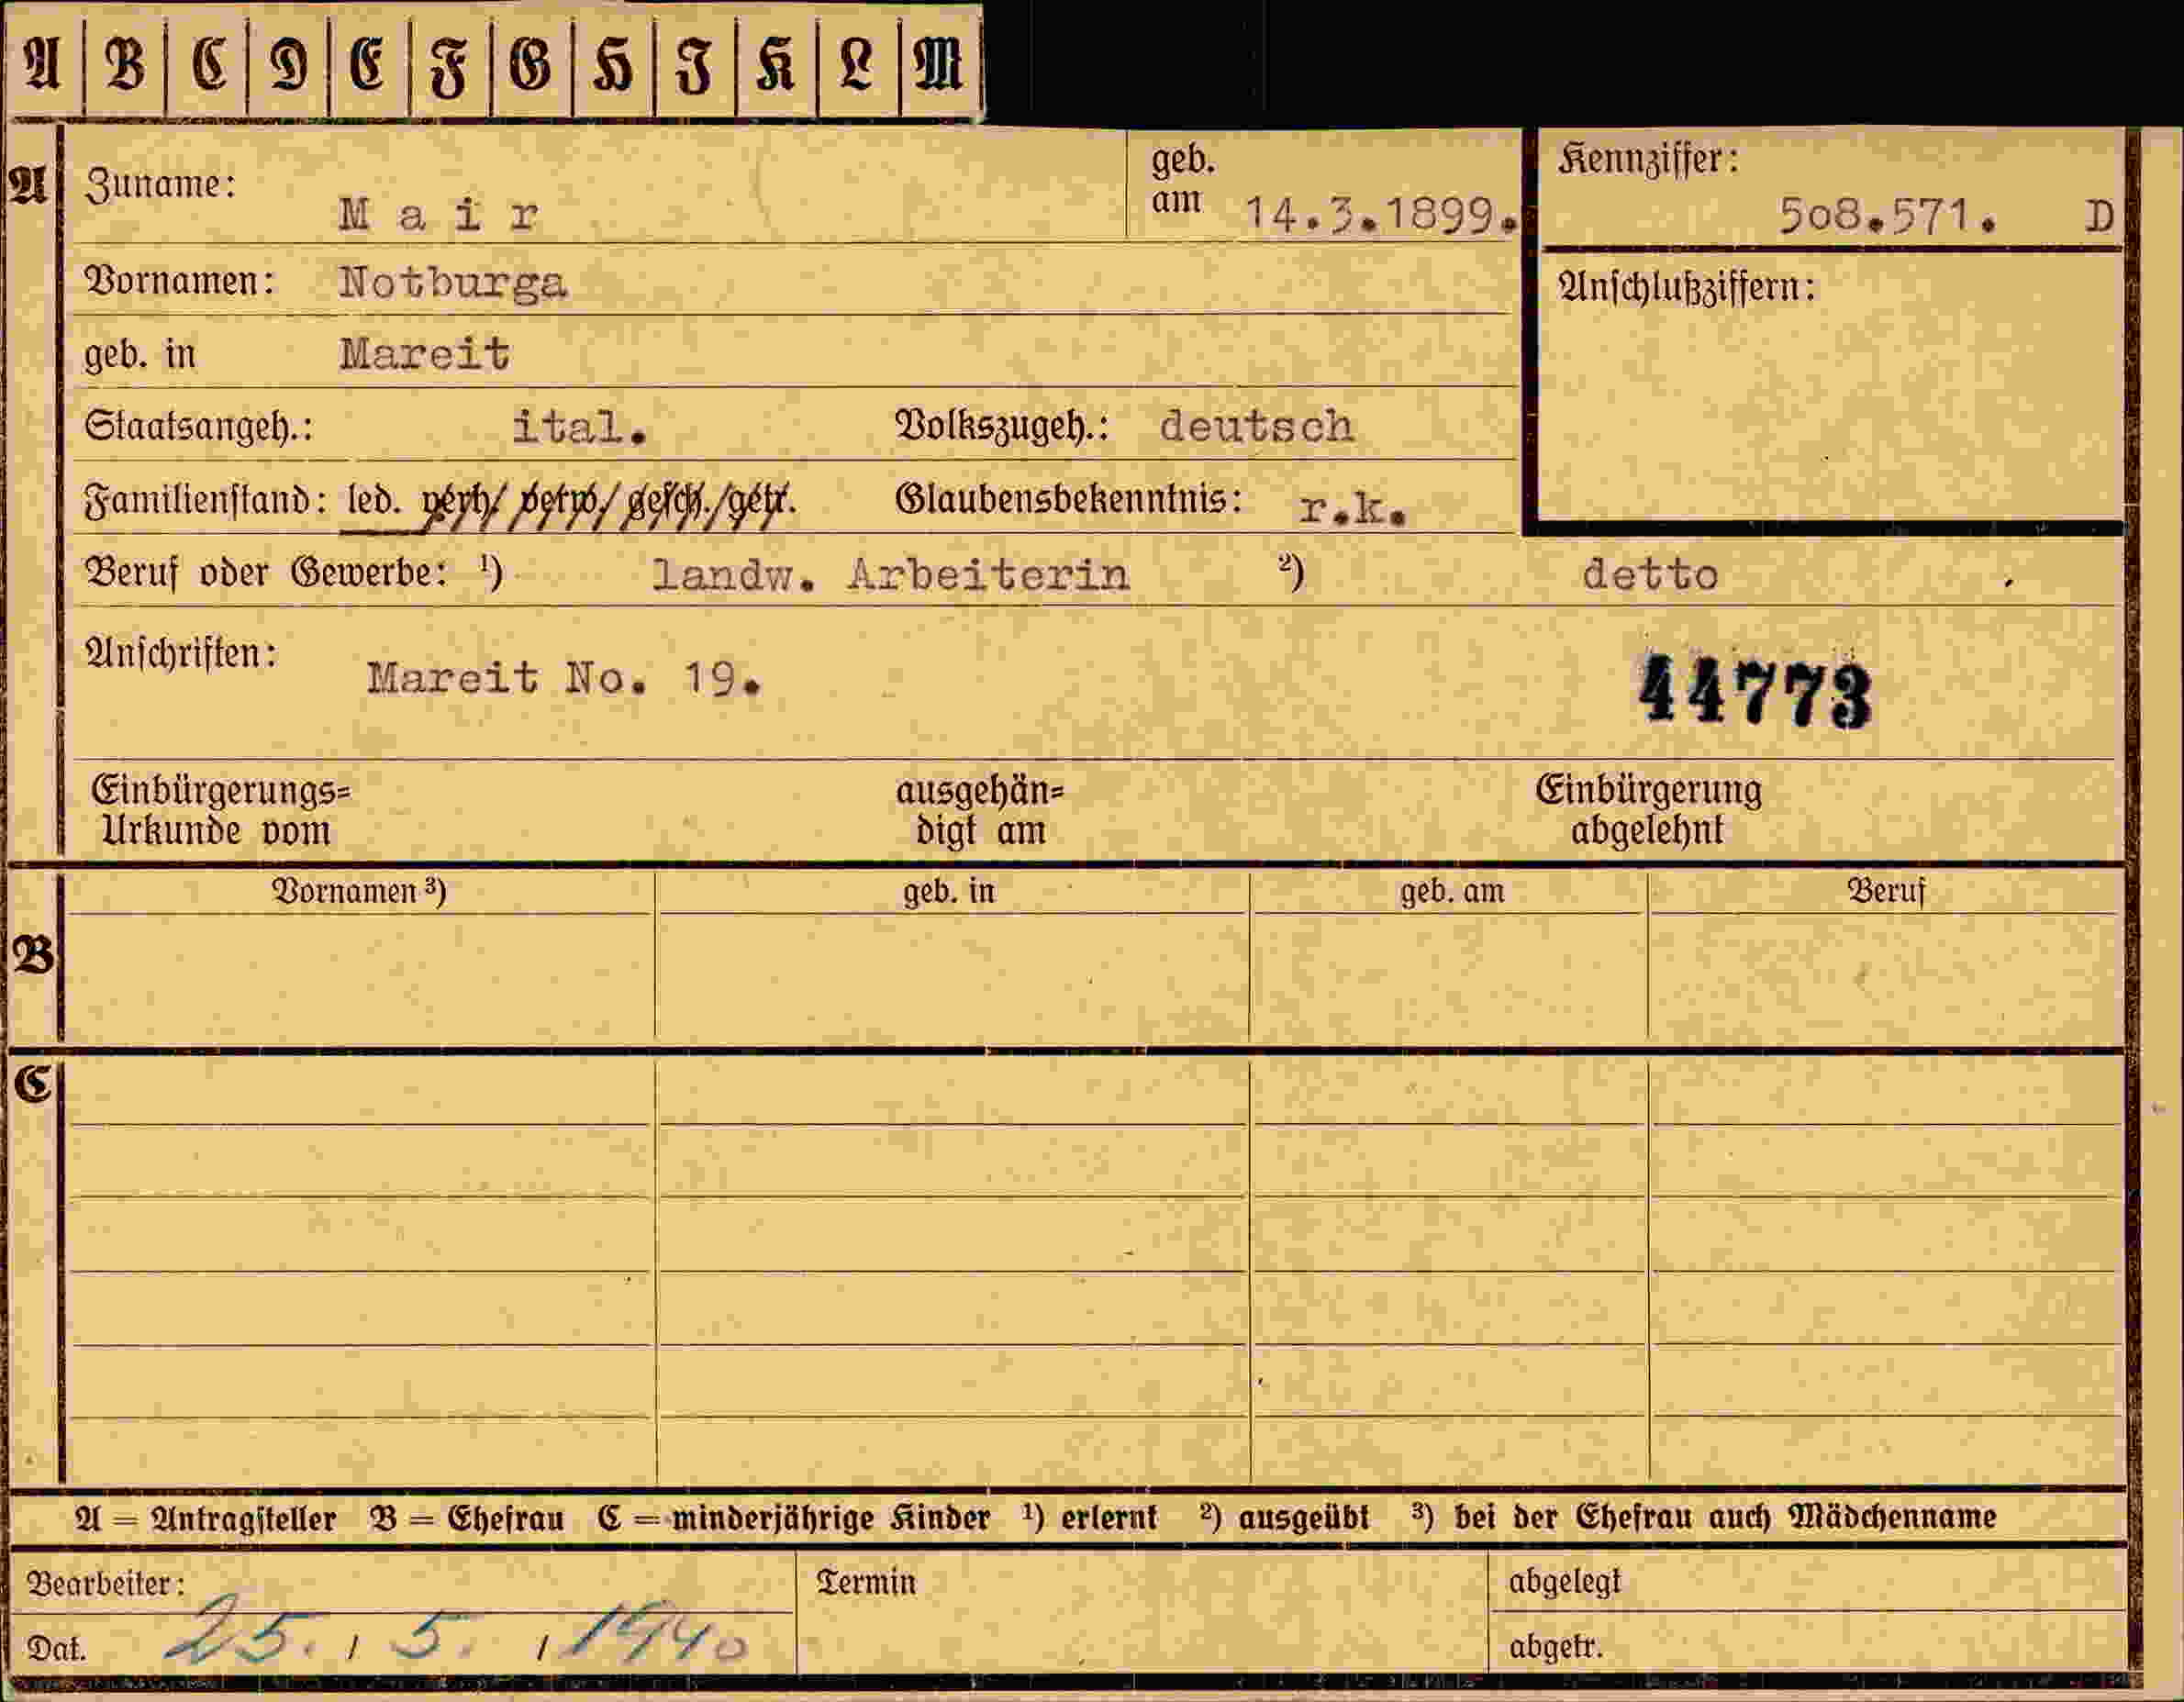 A B C D E F G H J K L M
A Zuname: Mair geb. am 14.3.1899. Kennziffer: 508.571. D
Vornamen: Notburga Anschlußziffern:
geb. in Mareit
Staatsangeh.: ital. Volkszugeh.: deutsch
Familienstand: led. verh/ verw/ gesch./getr. Glaubensbekenntnis: r.k.
Beruf oder Gewerbe: ¹) landw. Arbeiterin ²) detto
Anschriften: Mareit No. 19. 44773
Einbürgerungs= ausgehän= Einbürgerung
Urkunde vom digt am abgelehnt
Vornamen ³) geb. in geb. am Beruf
B
C
A = Antragsteller B = Ehefrau C = minderjährige Kinder ¹) erlernt ²) ausgeübt ³) bei der Ehefrau auch Mädchenname
Bearbeiter: Termin abgelegt
Dat. 25. / 5. / 1940 abgetr.